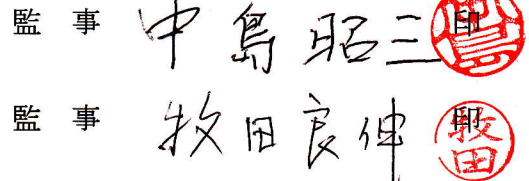 監事 中島昭三 印
監事 牧田良伸 印 牧田